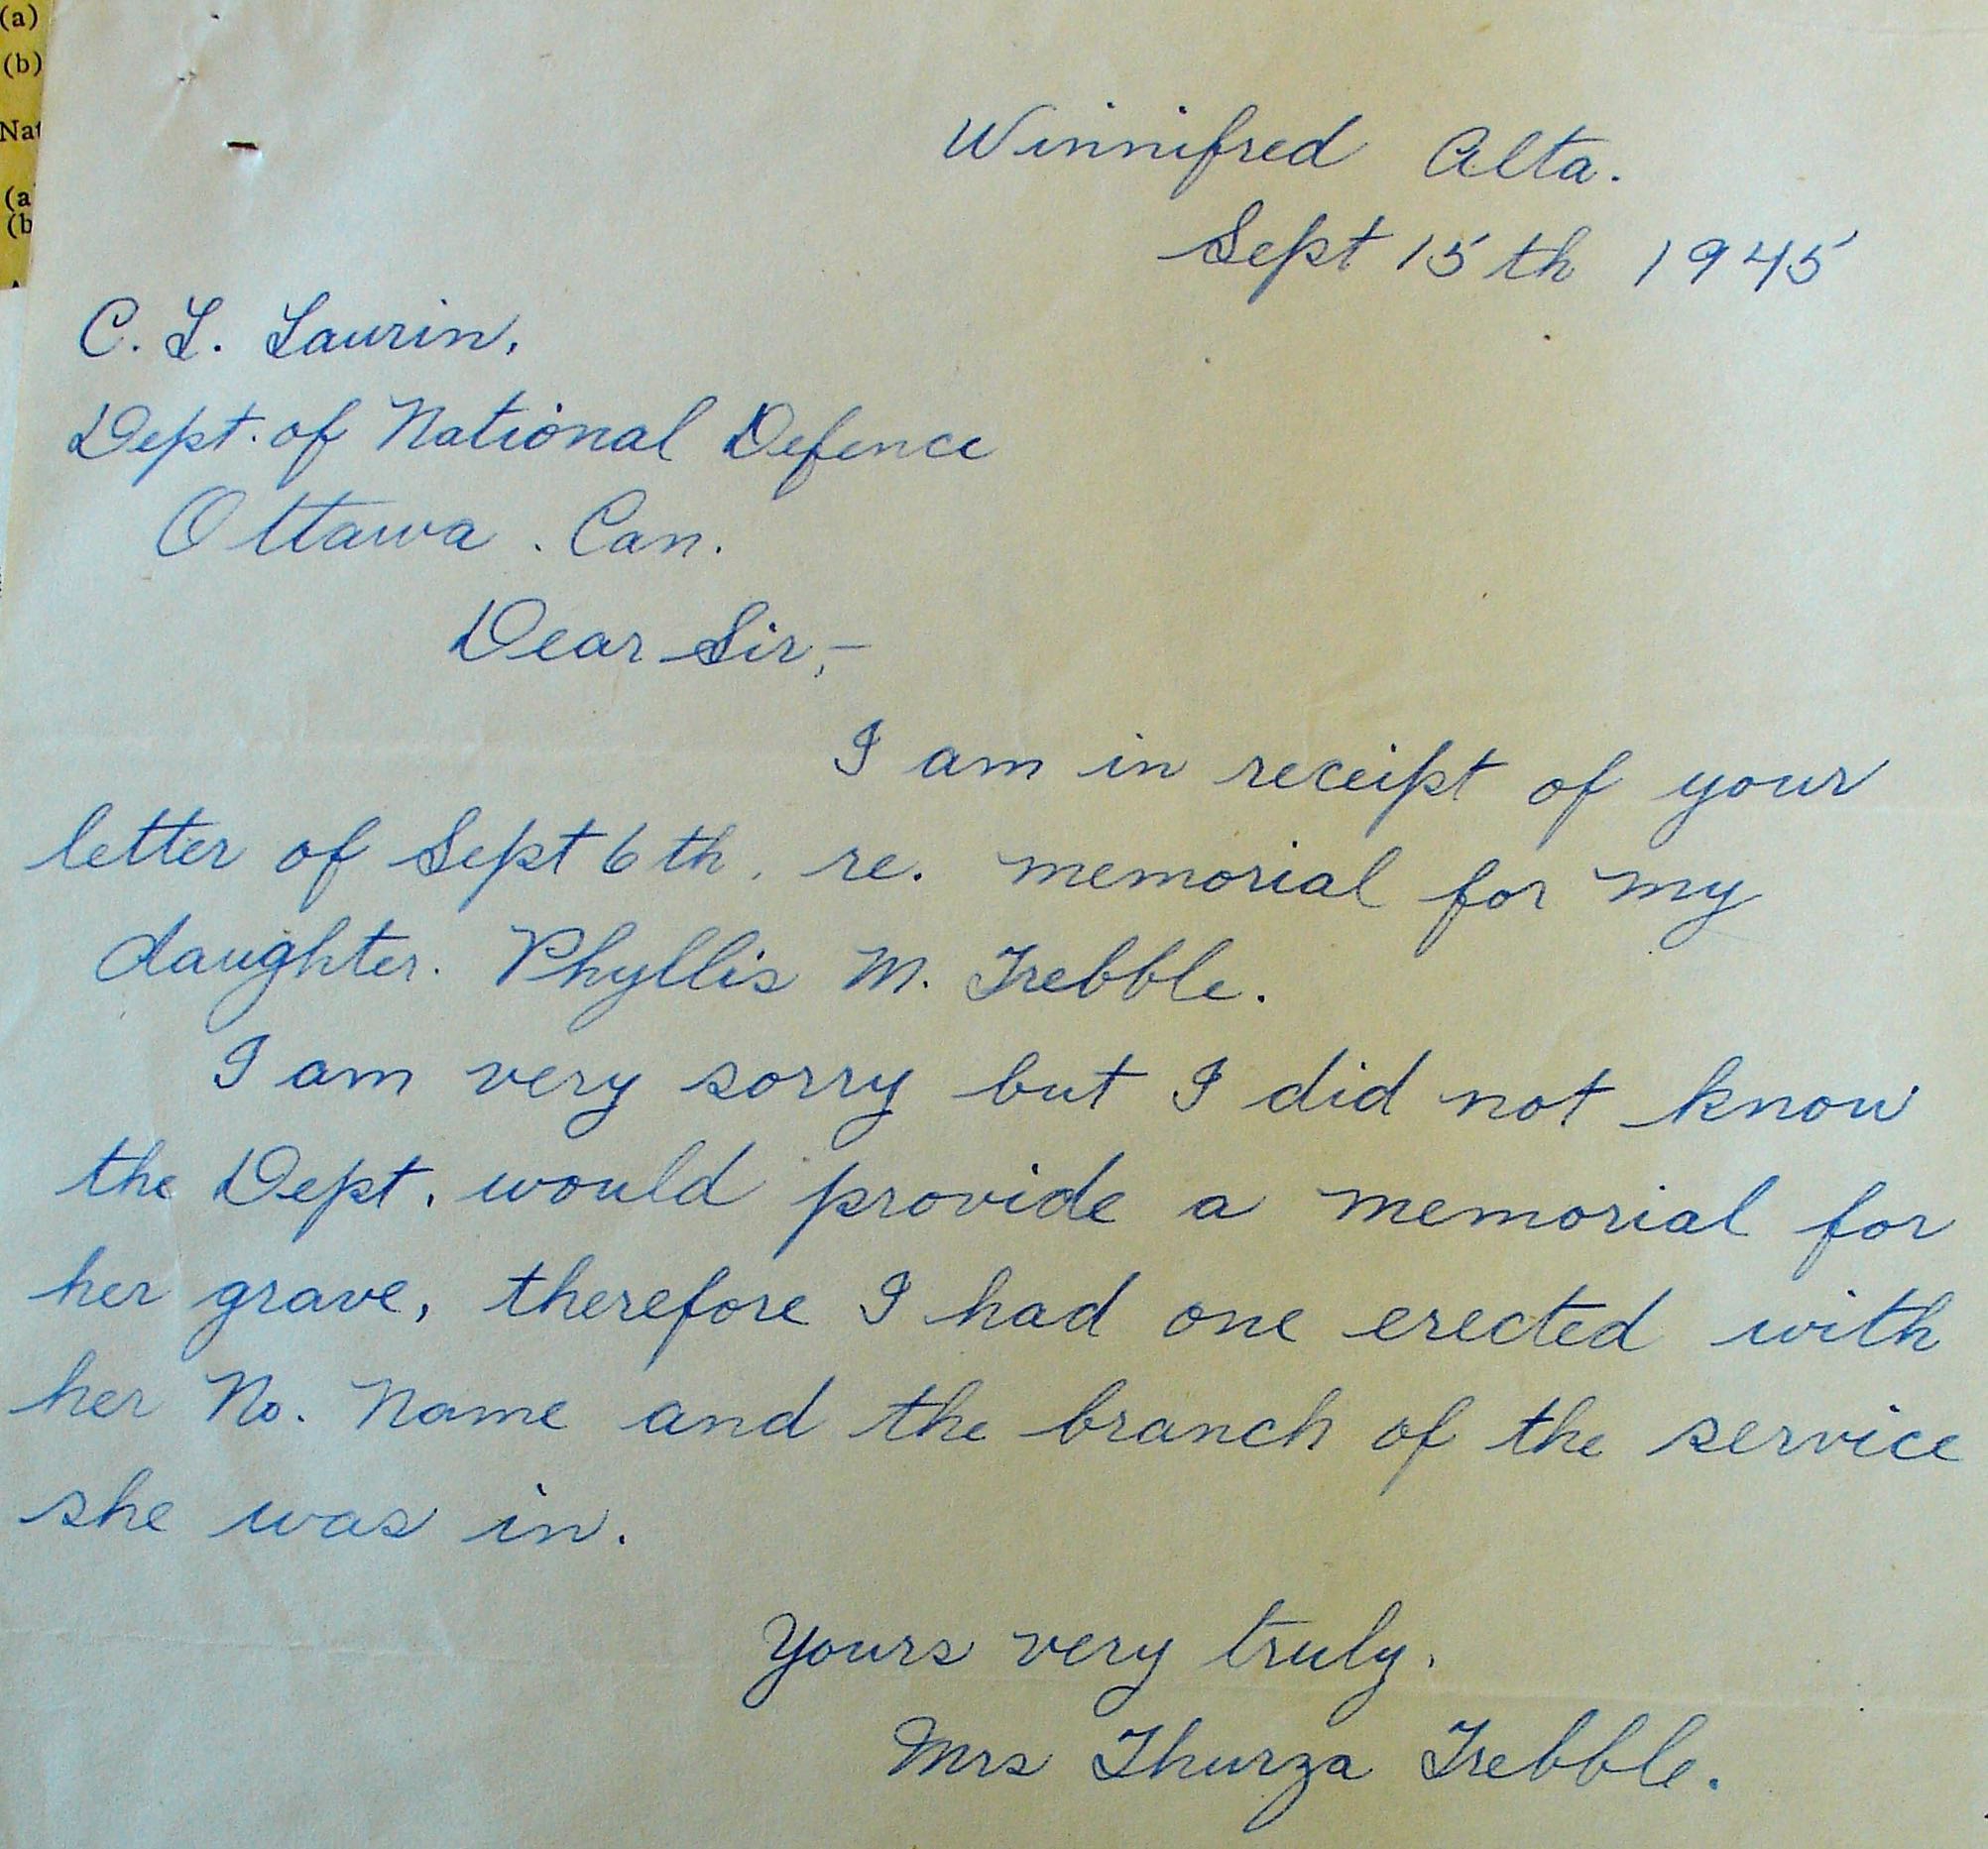 (a)
(b)
Nat
(a
(b
Winnifred Alta.
Sept 15th 1945
C. L. Laurin,
Dept. of National Defence
Ottawa . Can.
Dear Sir,-
I am in receipt of your
letter of Sept 6th. re. memorial for my
daughter. Phyllis M. Trebble.
I am very sorry but I did not know
the Dept. would provide a memorial for
her grave, therefore I had one erected with
her No. Name and the branch of the service
she was in.
Yours very truly.
Mrs Thurza Trebble.